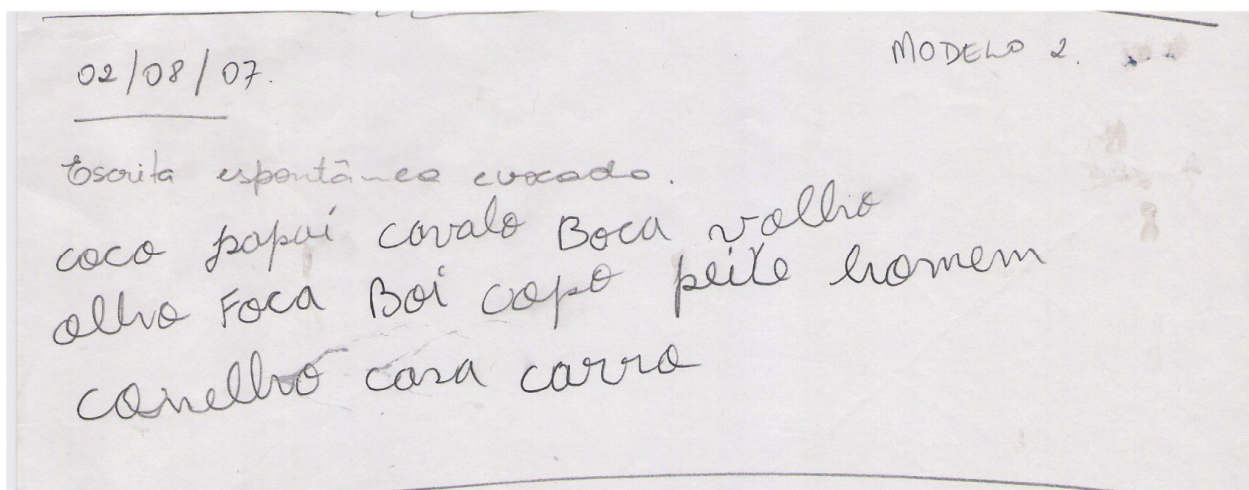 02/08/07.
MODELO 2.
Escrita espontânea evocado.
coco papai cavalo Boca valho
olho Foca Boi copo peite homem
casa carro